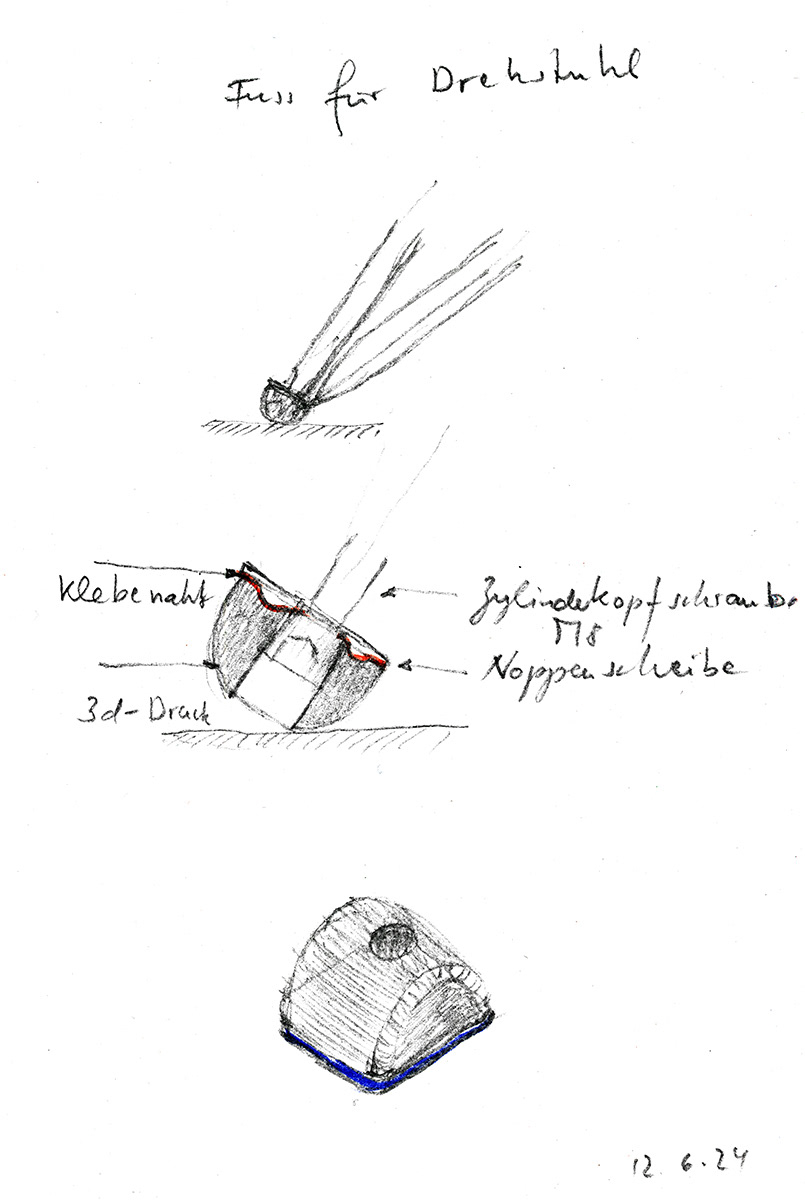 Fuss für Drehstuhl
Klebenaht
Zylinderkopfschraube
M8
Noppenscheibe
3d-Druck
12 6.24